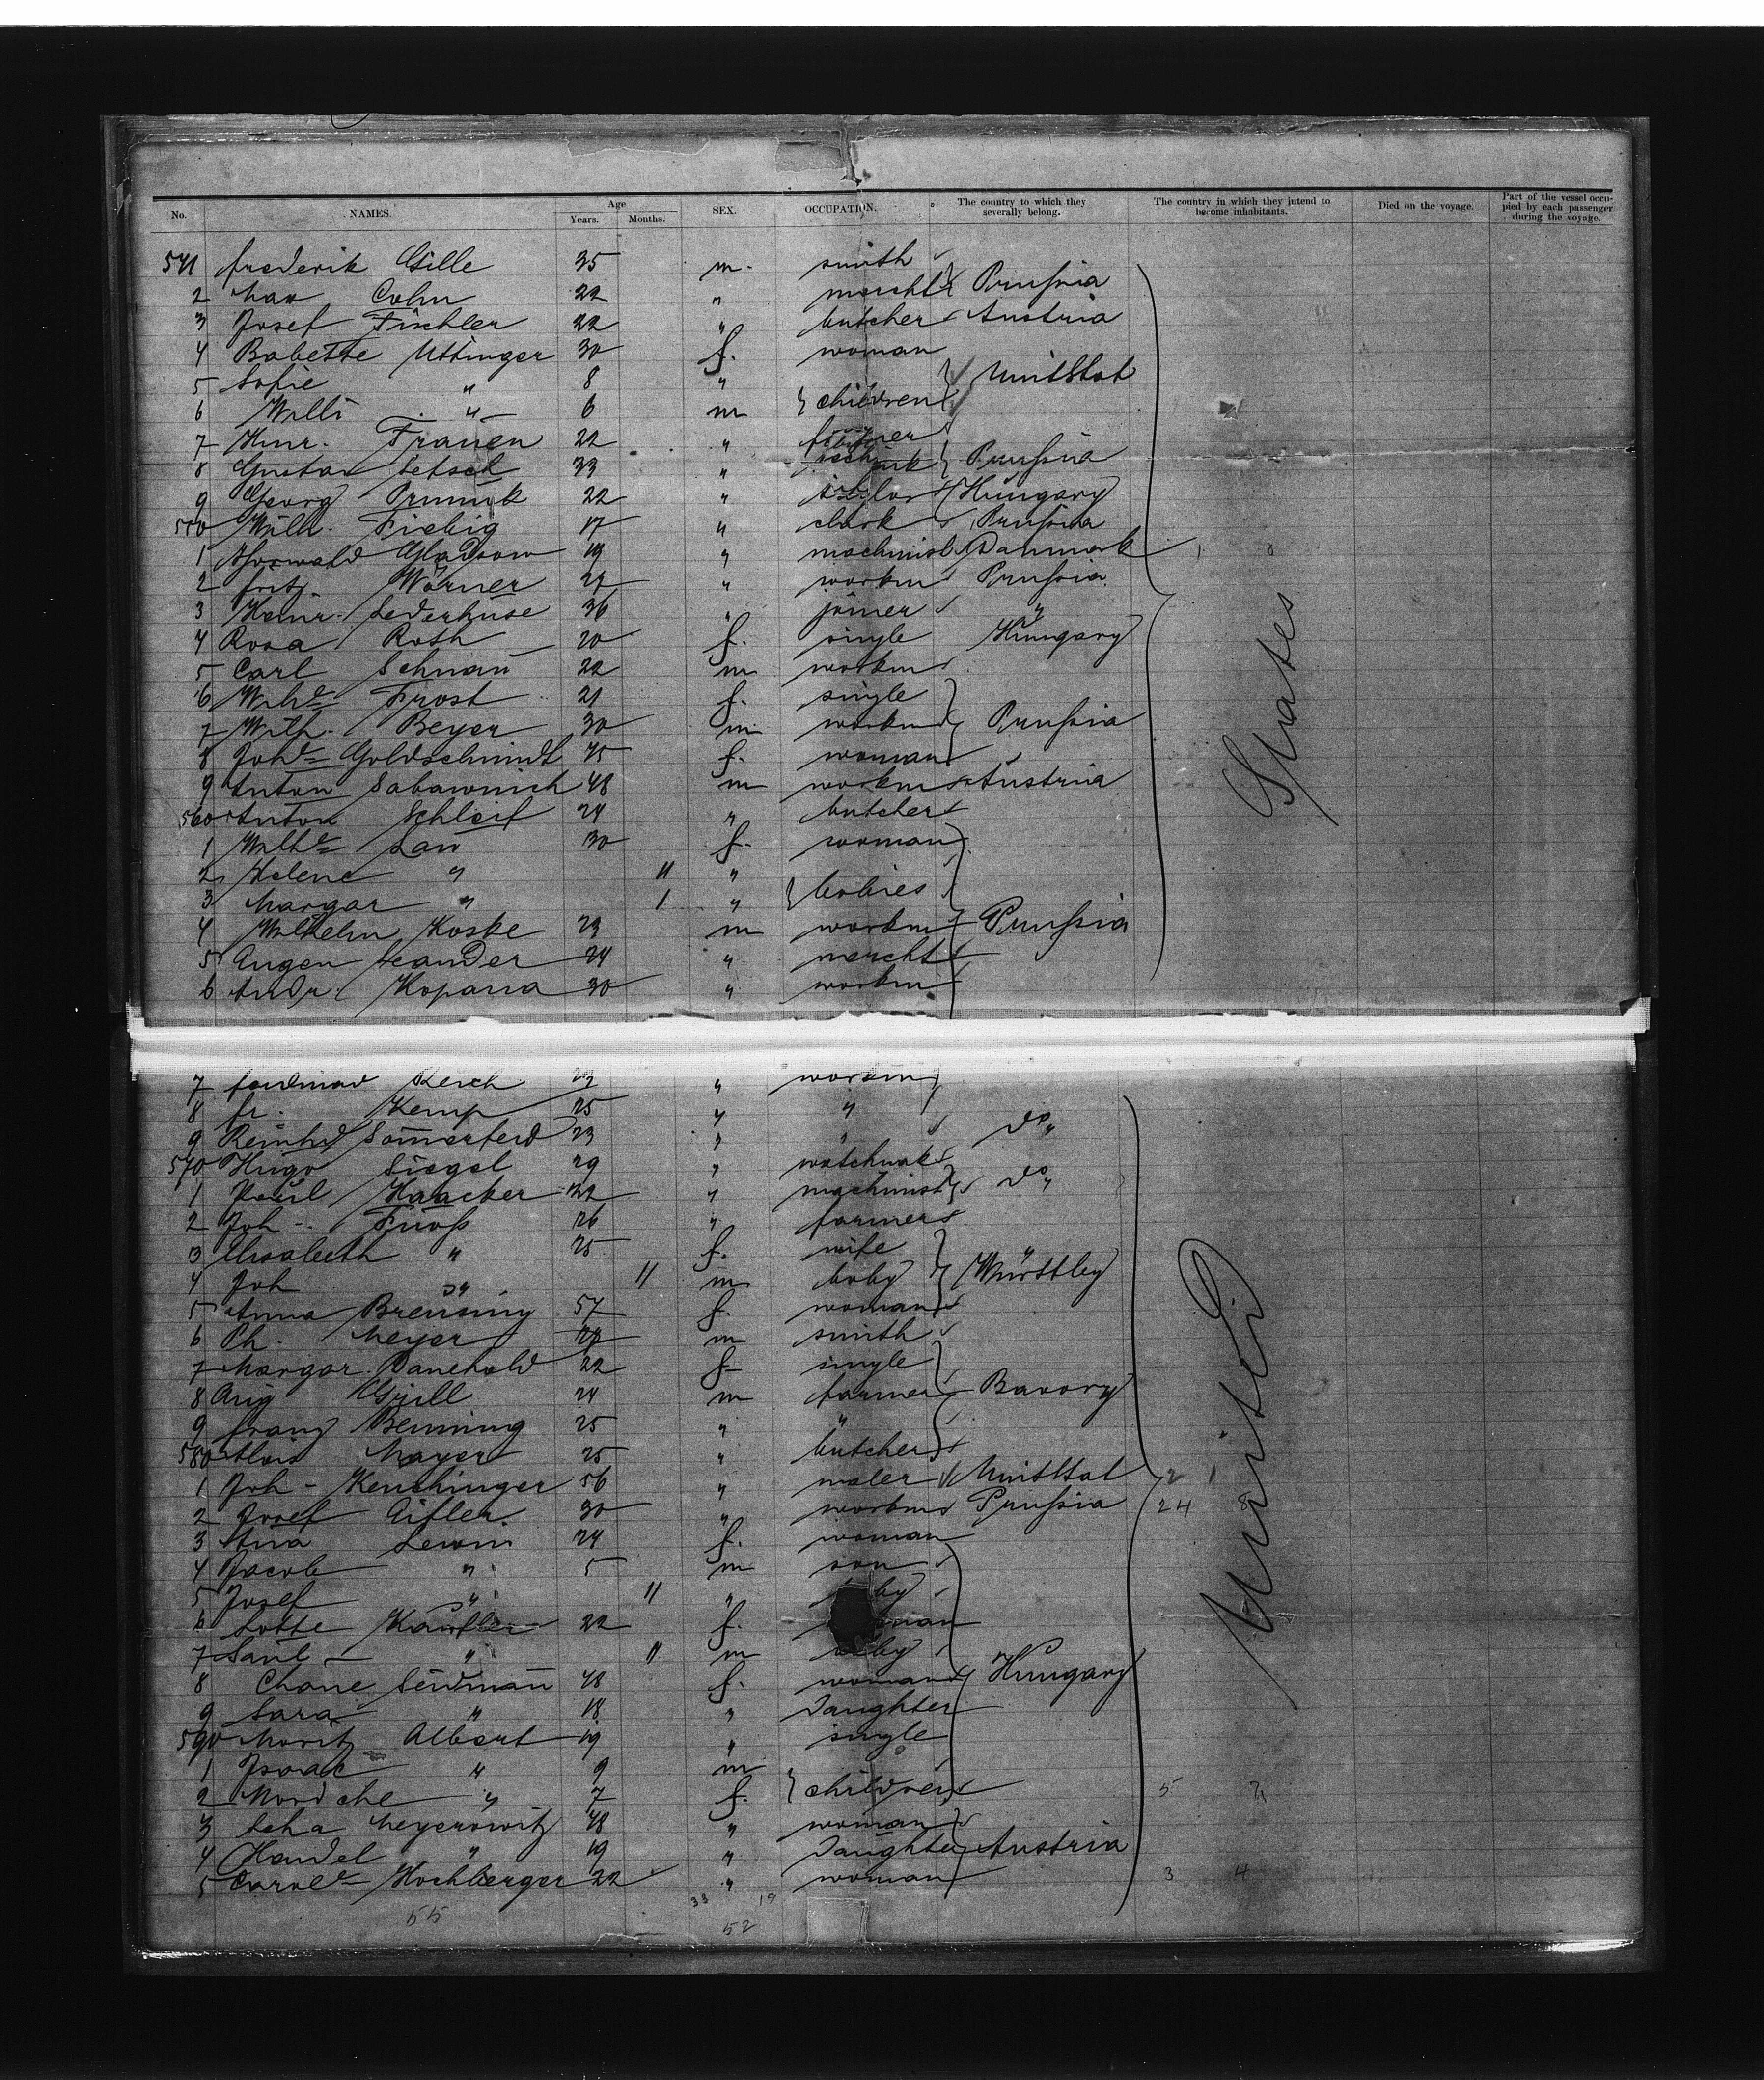 No. NAMES. Age Years. Months. SEX. OCCUPATION. The country to which they severally belong. The country in which they intend to become inhabitants. Died on the voyage. Part of the vessel occupied by each passenger during the voyage.
541 frederik Gille 35 m. smith
2 Max Cohn 22 " marcht Prußia
3 Josef Fischler 22 " butcher Austria
4 Babette Uttinger 30 f. woman
5 Sofie " 8 " UnitStat
6 Willi " 6 m children
7 Hinr. Frauen 22 "
8 Gustav Letsch 33 " Prußia
9 Georg 22 " Hungary
550 Wilh. Fiebig 17 " clerk Prußia
1 Thorwald 19 " machinist Danmark
2 fritz Wörner 27 " workm Prußia
3 Heinr. Lederhuse 36 " joiner "
4 Rosa Roth 20 f. single Hungary
5 Carl Schnau 22 m workm
6 Wilhe Frost 21 f. single
7 Wilh. Beyer 30 m workm Prußia
8 Johe Goldschmidt 45 f. woman
9 Anton Sabawnich 48 m workm Austria
560 Anton Schleif 24 " butcher
1 Wilhe Lau 30 f. woman
2 Helene " 11 "
3 Margar " 1 " babies
4 Wilhelm Koske 23 m workm Prußia
5 Augen Leander 24 " marcht
6 Andr. Kopania 30 " workm
States
7 ferdinand Lerch " workm
8 fr. Kemp 25 " "
9 Reinhd Somerferd 23 " " do
570 Hugo Siegel 29 " watchmak
1 Paul Haacker 22 " machinist do
2 Joh. Fuoß 26 " farmer
3 Elisabeth " 25 f. wife "
4 Joh " 11 m baby Württbg
5 Anna Breuning 57 f. woman
6 Ph. Meyer 28 m smith
7 Margar. Banehold 22 f single
8 Aug Grill 24 m farmer Bavory
9 franz Benning 25 " "
580 Alois Mayer 25 " butcher
1 Joh - Kenchinger 56 " maler UnitStat 2 1
2 Josef Eifler 30 " workm Prußia 24 8
3 Ana Lewin 24 f. woman
4 Jacob " 5 m son
5 Josef " 11 " by
6 Lotte Kaufler 22 f. man
7 Saul " 11 m baby
8 Chane Seidman 48 f. woman Hungary
9 Sara " 18 " Daughter
590 Moritz Albert 19 " single
1 Isaac " 9 m
2 Mordche " 7 f. children 5 2
3 Scha Meyerowitz 48 " woman
4 Handel " 19 " Daughter Austria
5 Carole Hochberger 22 " woman 3 4
United
55 33 19
52